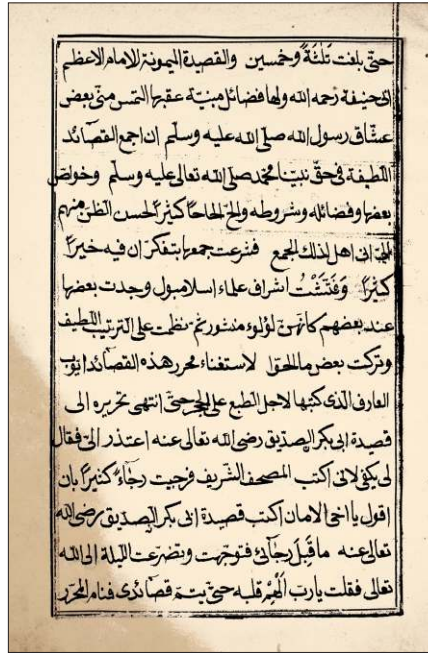 حتى بلغت ثلثة وخمسين والقصيدة الميمونة للامام الاعظم
ابى حنيفة رحمه الله ولها فضائل مبنية عقبها التمس منى بعض
عشاق رسول الله صلى الله عليه وسلم ان اجمع القصائد
اللطيفة فى حق نبينا محمد صلى الله تعالى عليه وسلم وخواص
بعضها وفضائله وشروطه والح الحاحا كثيرا لحسن الظن منهم
انى اهل لذلك الجمع فشرعت جمعها بتفكر ان فيه خيرا
كثيرا وَفَتَّشْتُ اشراف علماء اسلامبول وجدت بعضها
عند بعضهم كأنهن لؤلؤ منثور ثم نظمت على الترتيب اللطيف
وتركت بعض ما لحقوا لاستغناء محرر هذه القصائد ايوب
العارف الذى كتبها لاجل الطبع على الحجر حتى انتهى تحريره الى
قصيدة ابى بكر الصديق رضى الله تعالى عنه اعتذر الى فقال
لى يكفى لانى اكتب المصحف الشريف فرجيت رجاء كثيرا بان
اقول يا اخى الامان اكتب قصيدة ابى بكر الصديق رضى الله
تعالى عنه ما قَبِلَ رجائى فتوجهت وتضرعت الليلة الى الله
تعالى فقلت يا رب اَلْهِمْ قلبه حتى يتم قصائدى فنام المحرر